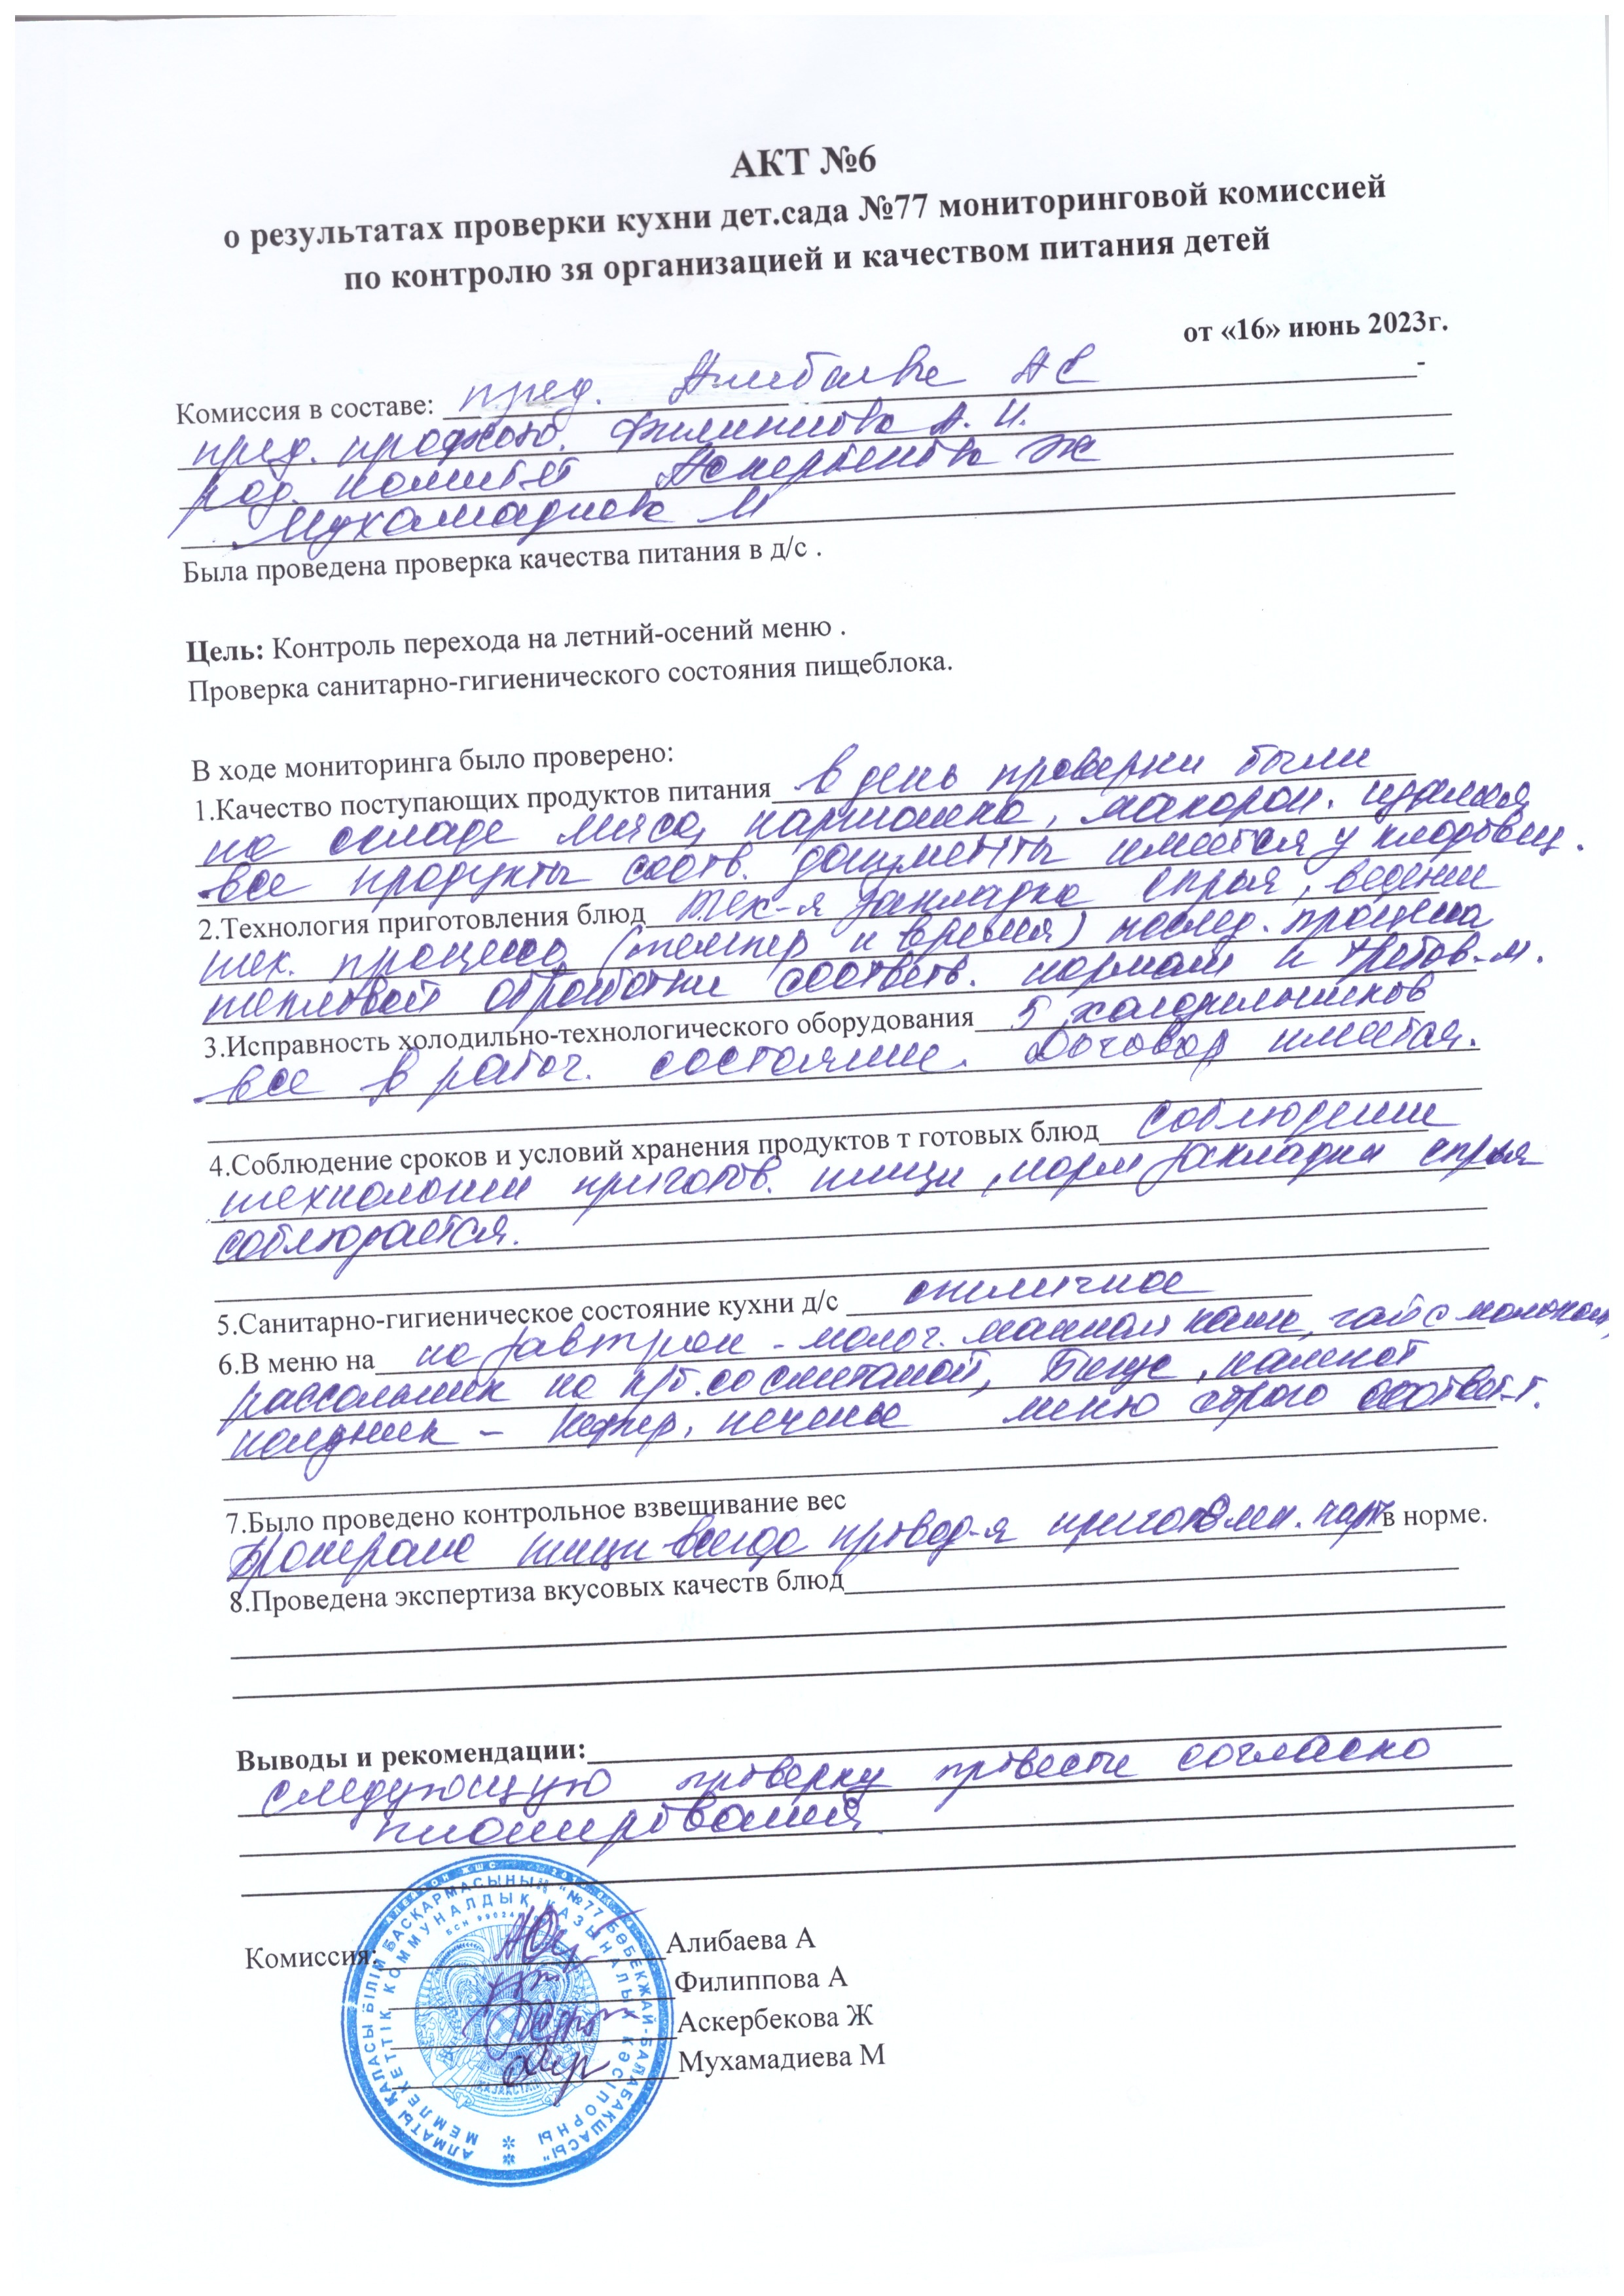 АКТ №6
о результатах проверки кухни дет.сада №77 мониторинговой комиссией
по контролю зя организацией и качеством питания детей
от «16» июнь 2023г.
Комиссия в составе: пред. Алибаева А С
пред. Филиппова А. И.
род. комитет Аскербекова Ж
Мухамадиева М
Была проведена проверка качества питания в д/с .
Цель: Контроль перехода на летний-осений меню .
Проверка санитарно-гигиенического состояния пищеблока.
В ходе мониторинга было проверено:
1.Качество поступающих продуктов питания в день проверки были
на складе мясо, картошка, макорон. изделия
все продукты соотв. документы имеется у кладовщ.
2.Технология приготовления блюд тех-я закладка сырья, ведение
тех. процесса (темпер и время) послед. процесса
тепловой обработки соответв. нормам и требов-м.
3.Исправность холодильно-технологического оборудования 5 холодильников
все в рабоч. состояние. Договор имеется.
4.Соблюдение сроков и условий хранения продуктов т готовых блюд соблюдении
технологии приготов. пищи, норм закладки сырья
соблюдается.
5.Санитарно-гигиеническое состояние кухни д/с отличное
6.В меню на на завтрак - молоч. манная каша, чай с молоком,
рассольник на к/б. со сметаной, компот
полдник - кефир, печенье меню строго соответ-т.
7.Было проведено контрольное взвешивание вес
пищи всегда провод-я в норме.
8.Проведена экспертиза вкусовых качеств блюд
Выводы и рекомендации:
следующую проверку провести согласно
планирования.
Комиссия: Алибаева А
Филиппова А
Аскербекова Ж
Мухамадиева М
АЛМАТЫ ҚАЛАСЫ БІЛІМ БАСҚАРМАСЫНЫҢ "№77 БӨБЕКЖАЙ-БАЛАБАҚШАСЫ"
МЕМЛЕКЕТТІК КОММУНАЛДЫҚ ҚАЗЫНАЛЫҚ КӘСІПОРНЫ